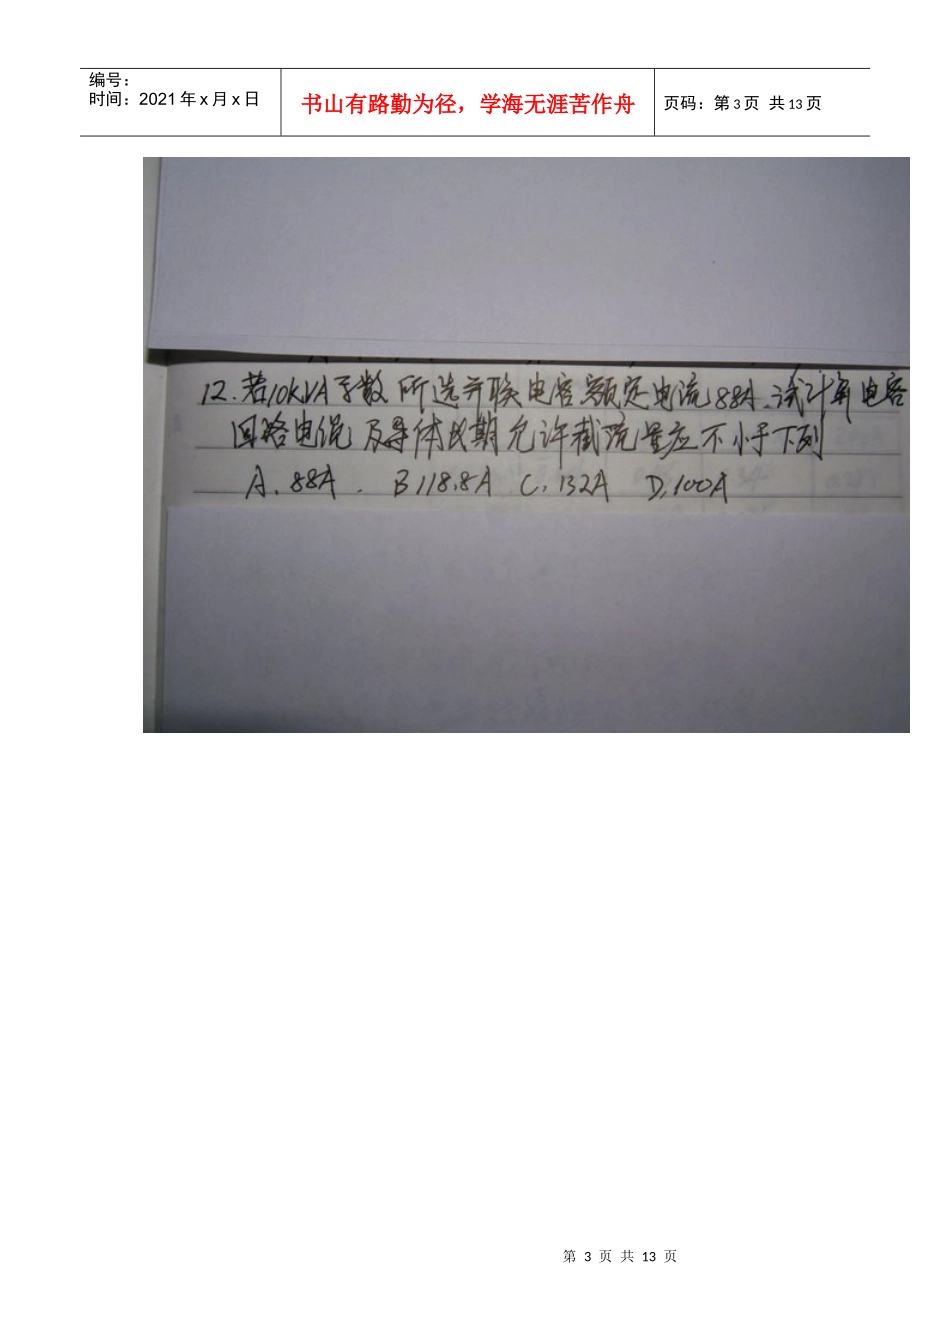 编号：
时间：2021年x月x日
书山有路勤为径，学海无涯苦作舟
页码：第3页 共13页
12.若10kVA 所选并联电容额定电流88A.试计算电容
回路电缆及导体长期允许截流量应不小于下列
A.88A. B118.8A C.132A D.100A
第 3 页 共 13 页